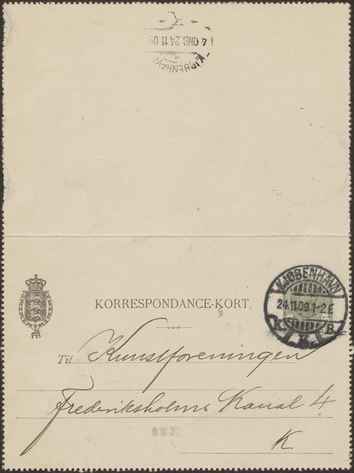 4 OMB 24.11.09
KJØBENHAVN
KORRESPONDANCE-KORT.
KJØBENHAVN
24.11.09.1-2 E
K. B.
Til Kunstforeningen
Frederiksholms Kanal 4
K